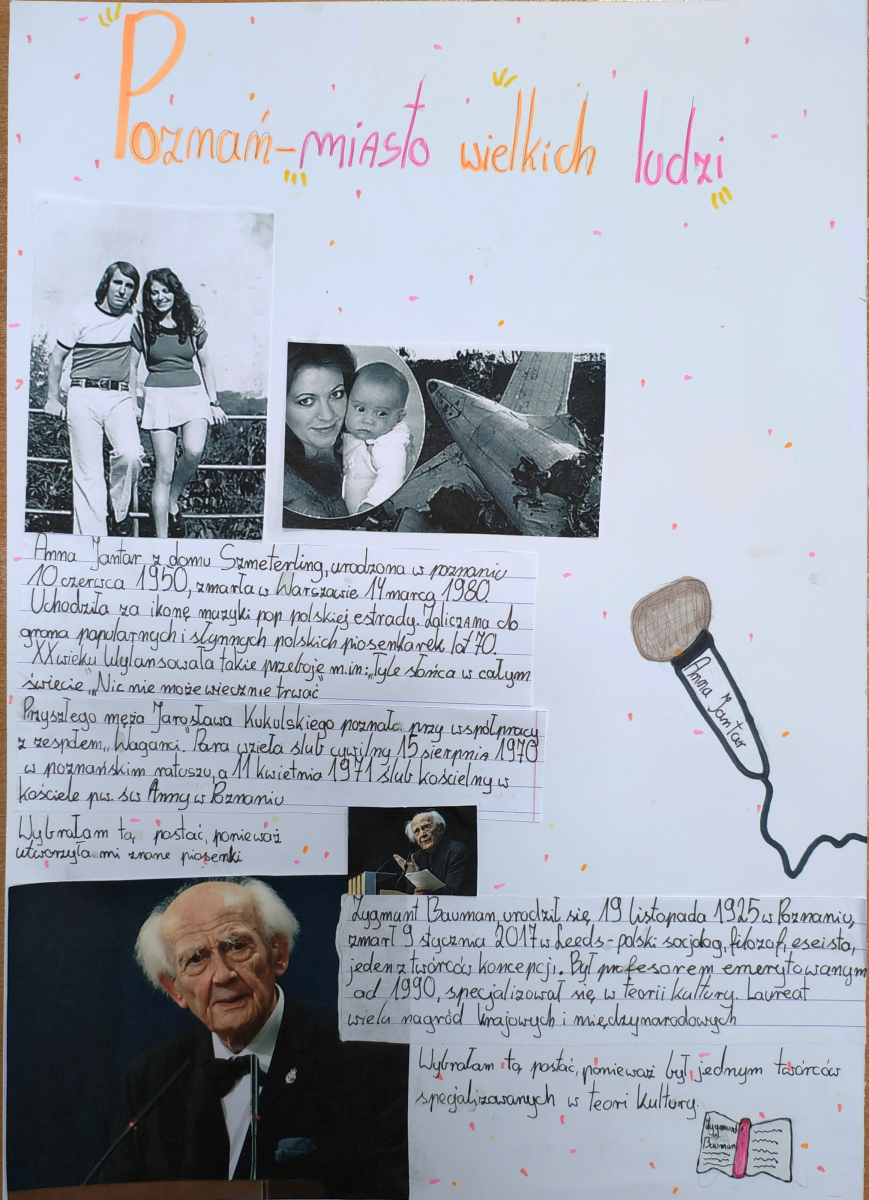 Poznań-miasto wielkich ludzi
Anna Jantar z domu Szmeterling, urodzona w poznaniu
10 czerwca 1950, zmarła w Warszawie 14 marca 1980.
Uchodziła za ikonę muzyki pop polskiej estrady. Zaliczana do
grona popularnych i słynnych polskich piosenkarek lat 70.
XX wieku. Wylansowała takie przeboje m.in: „Tyle słońca w całym
świecie", „Nic nie może wiecznie trwać"
Przyszłego męża Jarosława Kukulskiego poznała przy współpracy
z zespołem „Waganci". Para wzieła ślub cywilny 15 sierpnia 1970
w poznańskim ratuszu, a 11 kwietnia 1971 ślub kościelny w
kościele pw. św Anny w Poznaniu
Wybrałam tą postać, ponieważ
utworzyła mi znane piosenki
Anna Jantar
Zygmunt Bauman, urodził się 19 listopada 1925 w Poznaniu,
zmarł 9 stycznia 2017 w Leeds - polski socjolog, filozof, eseista,
jeden z twórców koncepcji. Był profesorem emerytowanym
od 1990, specjalizował się w teorii kultury. Laureat
wielu nagród krajowych i międzynarodowych
Wybrałam tą postać, ponieważ był jednym twórców
specjalizowanych w teori kultury.
Zygmund
Bauman